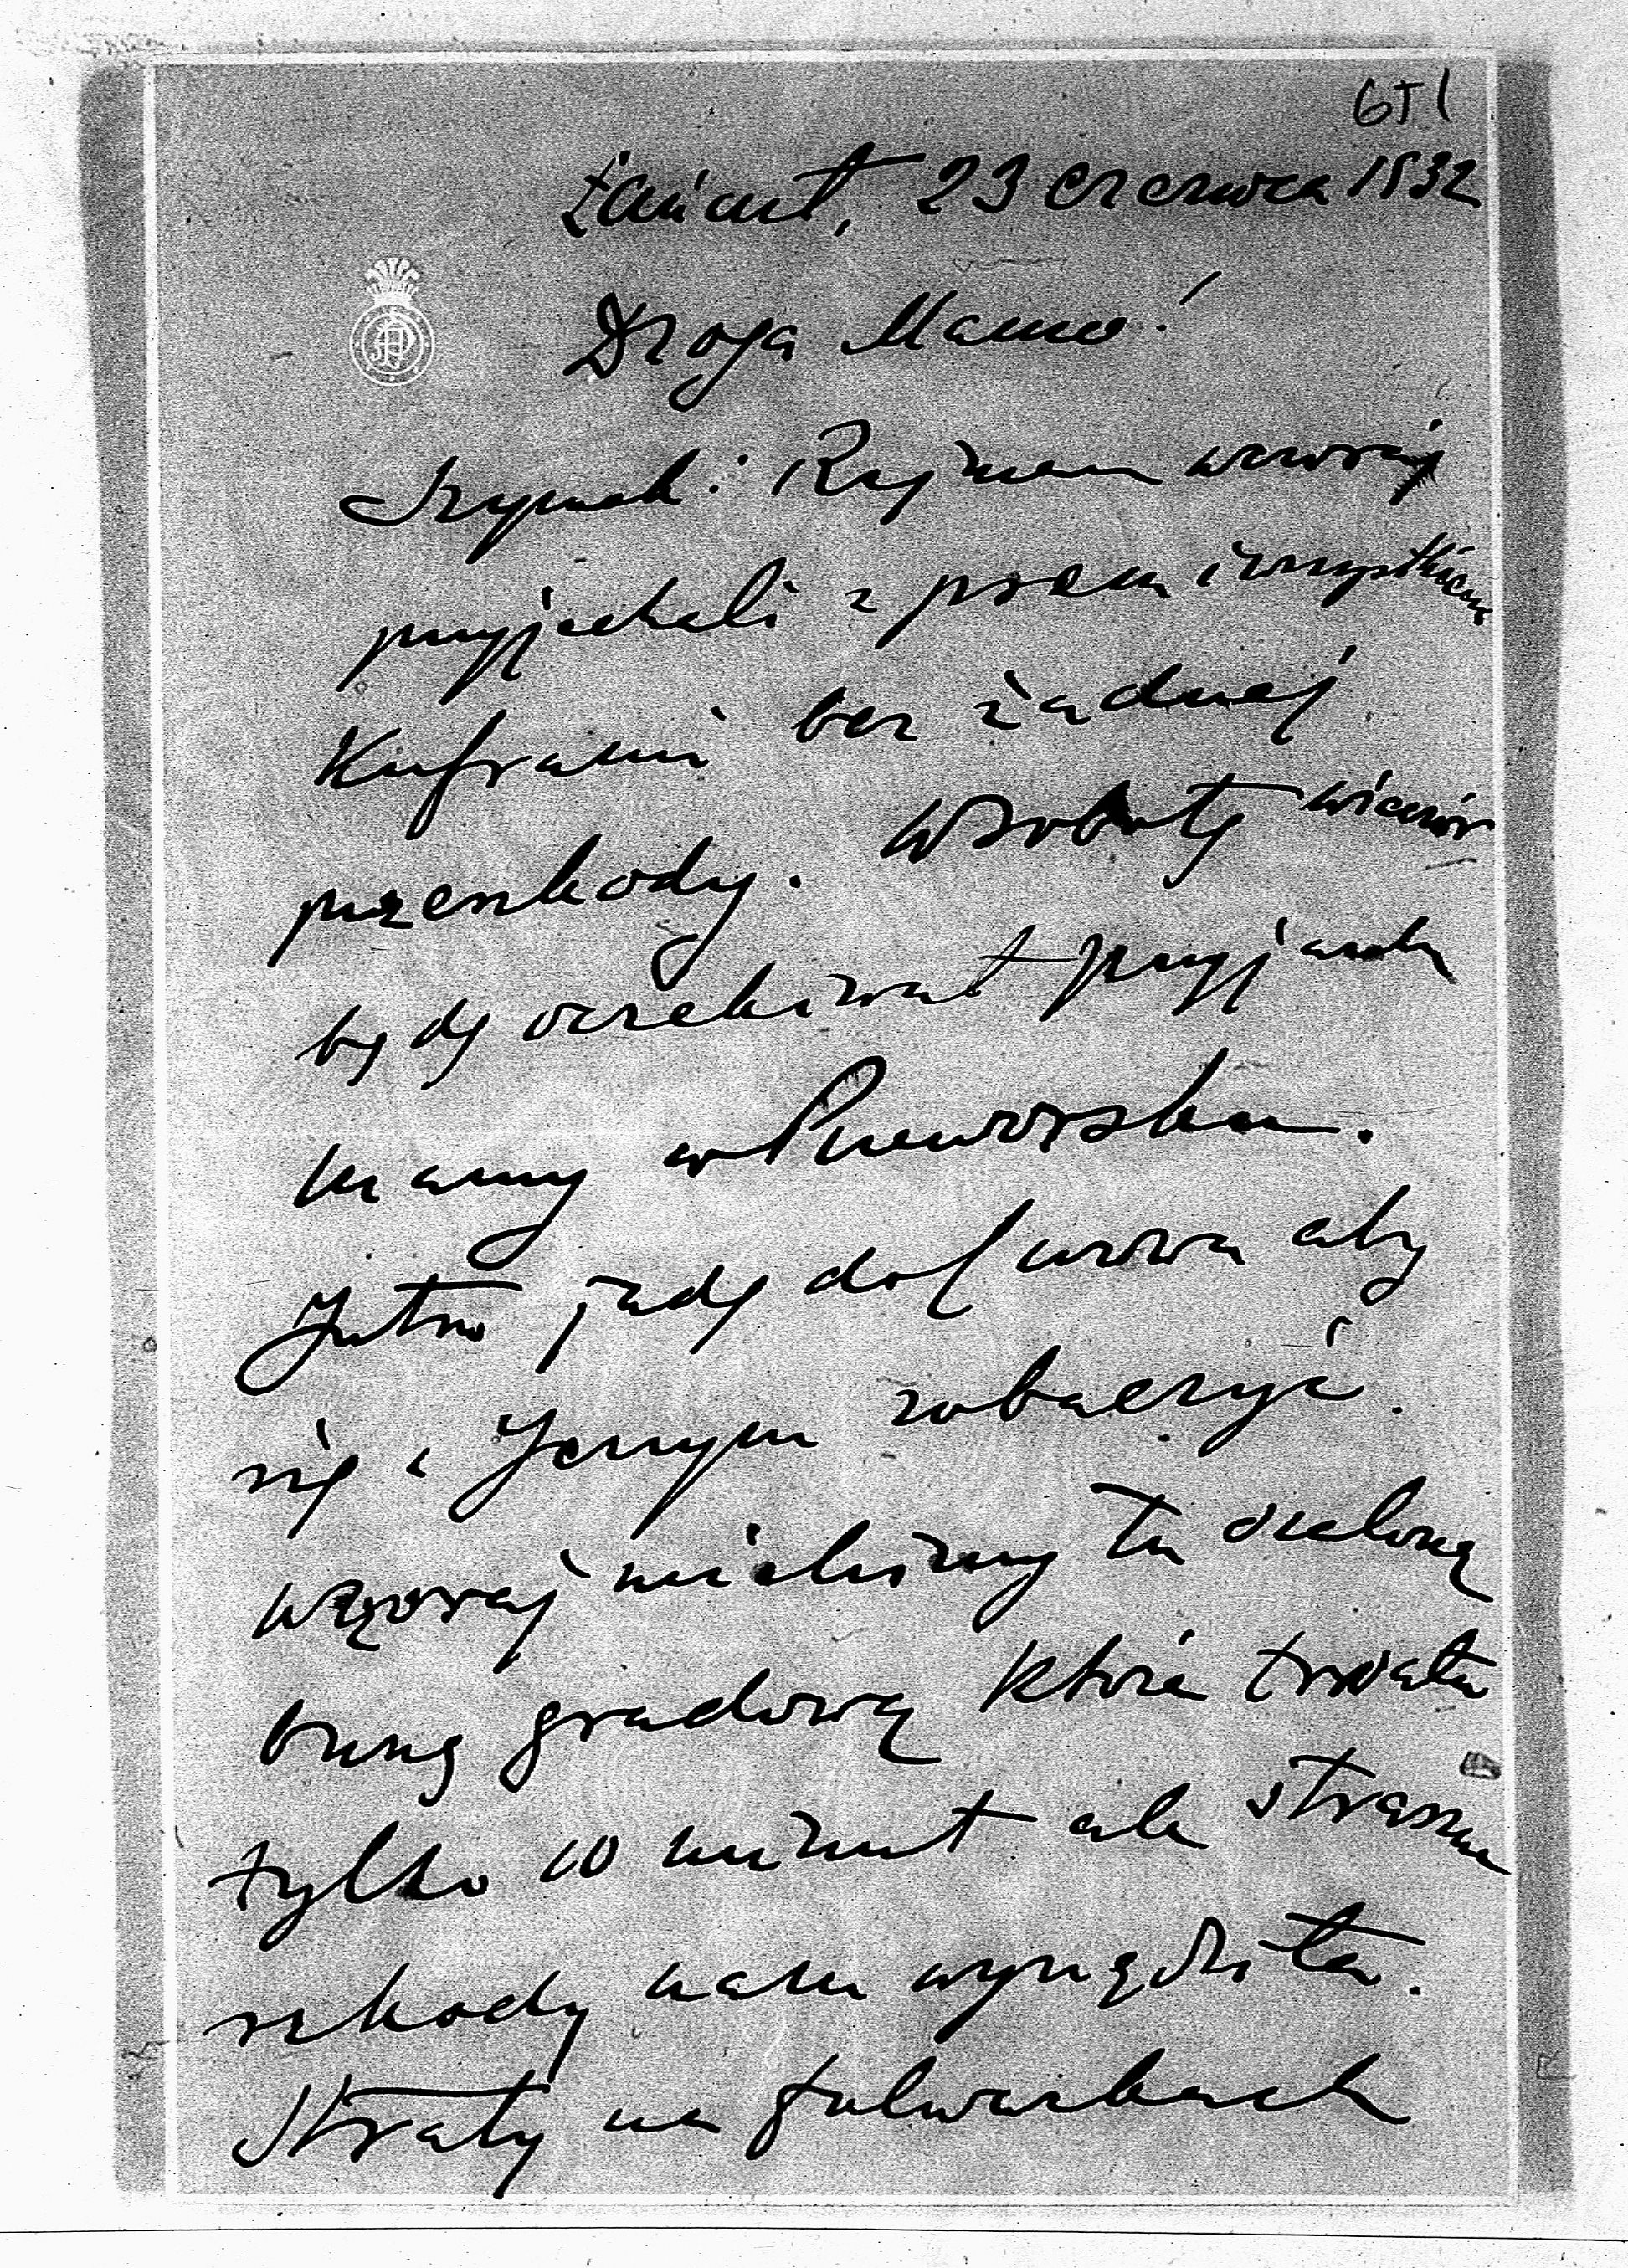 651
Łańcut, 23 czerwca 1932
Droga Mamo!
Szymek i Rajman wczoraj
przyjechali z psem i wszystkiem
Kuframi bez żadnej
przeszkody. W sobotę wieczór
będę oczekiwał przyjazdu
mamy w Przeworsku.
Jutro jadę do Lwowa aby
się z Jerzym zobaczyć.
Wczoraj mieliśmy tu szaloną
burzę gradową która trwała
tylko 10 minut ale straszne
szkody nam wyrządziła.
Straty na folwarkach